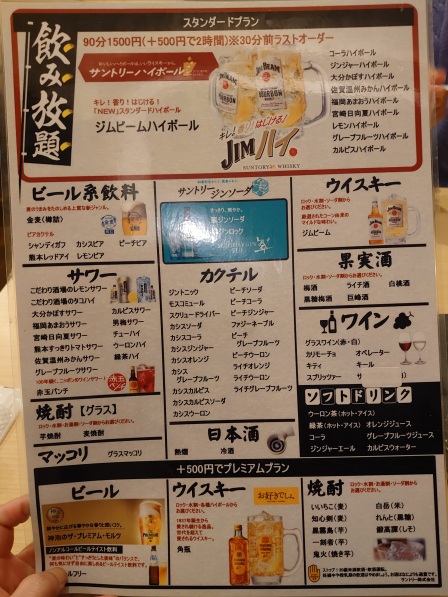 飲み放題
スタンダードプラン
90分1500円(+500円で2時間)※30分前ラストオーダー
サントリーハイボール
キレ!香り!はじける!
「NEW」スタンダードハイボール
ジムビームハイボール
JIM BEAM
BOURBON
キレ!香り!はじける!
JIMハイ。
SUNTORY WHISKY
コーラハイボール
ジンジャーハイボール
大分かぼすハイボール
佐賀温州みかんハイボール
福岡あまおうハイボール
宮崎日向夏ハイボール
レモンハイボール
グレープフルーツハイボール
カルピスハイボール
ビール系飲料
金麦(樽詰)
ビアカクテル
シャンディガフ カシスビア ピーチビア
熊本レッドアイ レモンビア
サワー
こだわり酒場のレモンサワー
こだわり酒場のタコハイ
大分かぼすサワー
福岡あまおうサワー
宮崎日向夏サワー
熊本すっきりトマトサワー
佐賀温州みかんサワー
グレープフルーツサワー
カルピスサワー
男梅サワー
チューハイ
ウーロンハイ
緑茶ハイ
赤玉パンチ
焼酎【グラス】
芋焼酎 麦焼酎
マッコリ グラスマッコリ
サントリージンソーダ
翠ジンソーダ
カクテル
ジントニック
モスコミュール
スクリュードライバー
カシスソーダ
カシスコーラ
カシスジンジャー
カシスオレンジ
カシス
グレープフルーツ
カシスカルピス
カシスカルピスソーダ
カシスウーロン
ピーチソーダ
ピーチコーラ
ピーチジンジャー
ファジーネーブル
ピーチ
グレープフルーツ
ピーチウーロン
ライチソーダ
ライチオレンジ
ライチ
グレープフルーツ
ライチウーロン
日本酒
熱燗 冷酒
ウイスキー
ジムビーム
果実酒
梅酒 ライチ酒 白桃酒
黒糖梅酒 巨峰酒
ワイン
グラスワイン(赤・白)
カリモーチョ オペレーター
キティ キール
スプリッツァー
ソフトドリンク
ウーロン茶(ホット・アイス)
緑茶(ホット・アイス) オレンジジュース
コーラ グレープフルーツジュース
ジンジャーエール カルピスウォーター
+500円でプレミアムプラン
ビール
神泡のザ・プレミアム・モルツ
ノンアルコールビールテイスト飲料
ウイスキー
お好きでしょ。
角瓶
焼酎
いいちこ(麦)
知心剣(麦)
黒霧島(芋)
一刻者(芋)
鬼火(焼き芋)
白岳(米)
れんと(黒糖)
サントリー株式会社